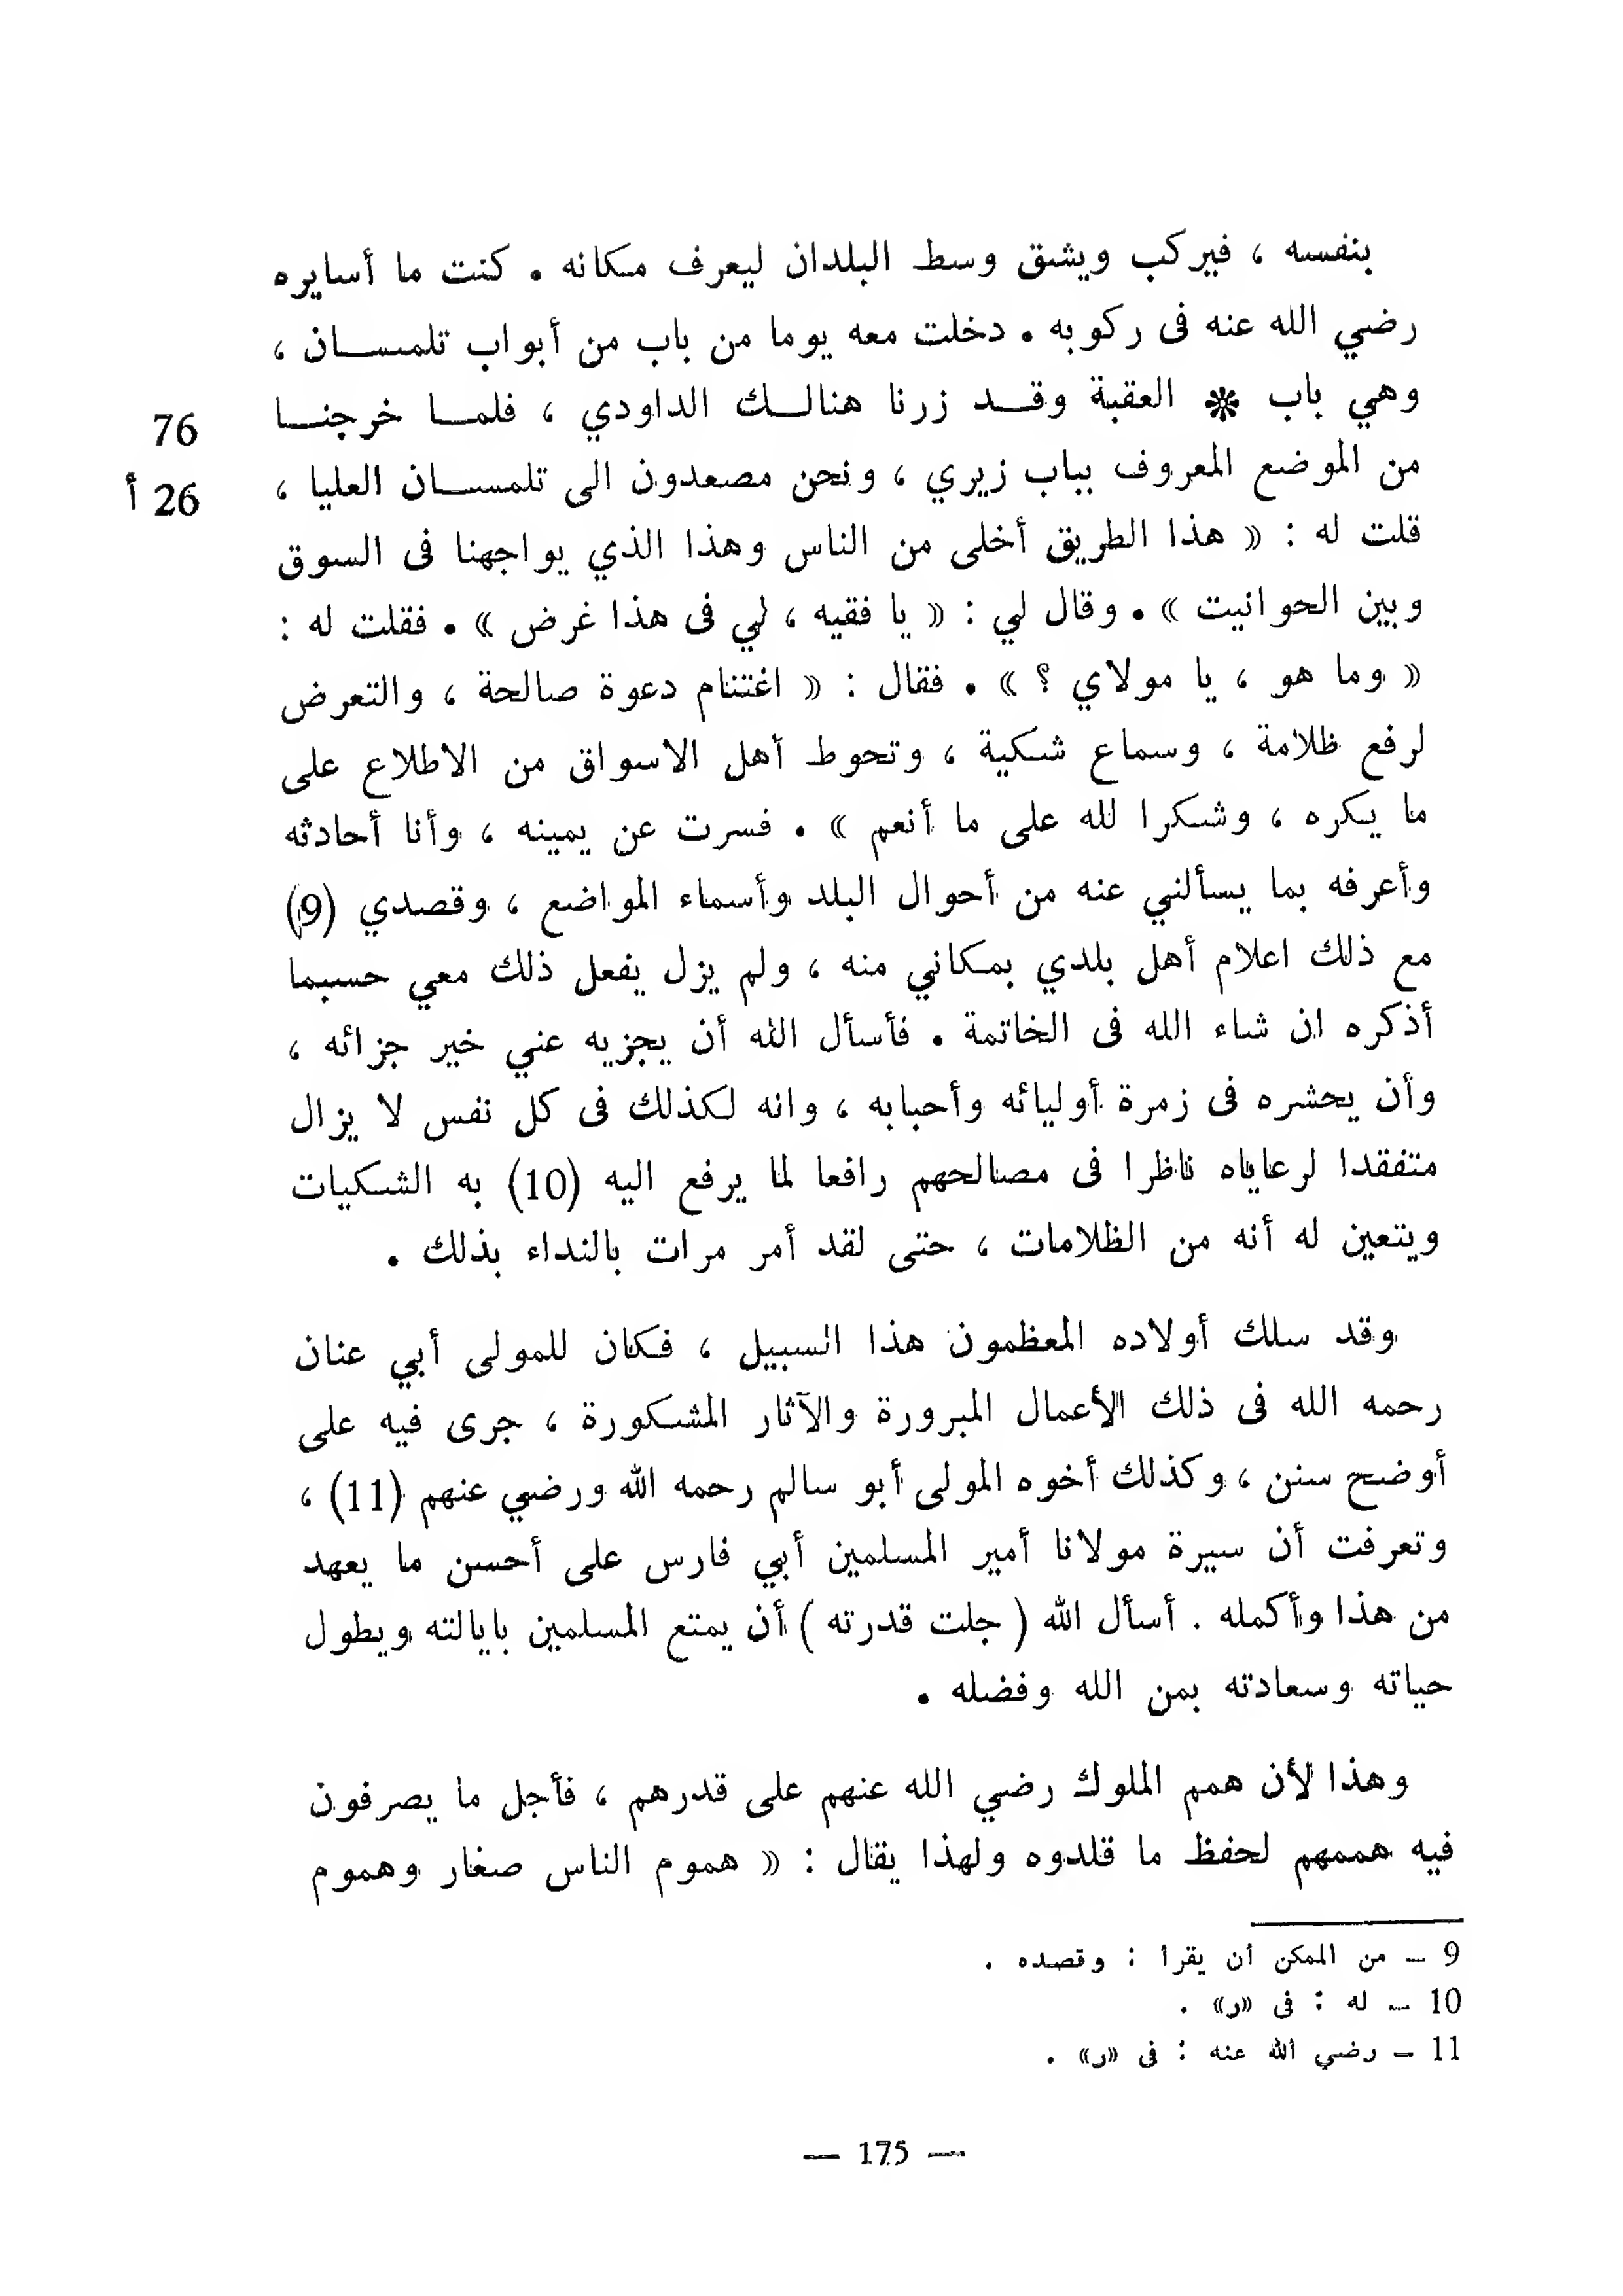 بنفسه ، فيركب ويشق وسط البلدان ليعرف مكانه . كنت ما أسايره
رضي الله عنه فى ركوبه . دخلت معه يوما من باب من أبواب تلمسان ،
وهي باب * العقبة وقد زرنا هنالك الداودي ، فلما خرجنا
76
من الموضع المعروف بباب زيري ، ونحن مصعدون الى تلمسان العليا ،
26 أ
قلت له : « هذا الطريق أخلى من الناس وهذا الذي يواجهنا فى السوق
وبين الحوانيت » . وقال لي : « يا فقيه ، لي فى هذا غرض » . فقلت له :
« وما هو ، يا مولاي ؟ » . فقال : « اغتنام دعوة صالحة ، والتعرض
لرفع ظلامة ، وسماع شكية ، وتحوط أهل الاسواق من الاطلاع على
ما يكره ، وشكرا لله على ما أنعم » . فسرت عن يمينه ، وأنا أحادثه
وأعرفه بما يسألني عنه من أحوال البلد وأسماء المواضع ، وقصدي (9)
مع ذلك اعلام أهل بلدي بمكاني منه ، ولم يزل يفعل ذلك معي حسبما
أذكره ان شاء الله فى الخاتمة . فأسأل الله أن يجزيه عني خير جزائه ،
وأن يحشره فى زمرة أوليائه وأحبابه ، وانه لكذلك فى كل نفس لا يزال
متفقدا لرعاياه ناظرا فى مصالحهم رافعا لما يرفع اليه (10) به الشكيات
ويتعين له أنه من الظلامات ، حتى لقد أمر مرات بالنداء بذلك .
وقد سلك أولاده المعظمون هذا السبيل ، فكان للمولى أبي عنان
رحمه الله فى ذلك الأعمال المبرورة والآثار المشكورة ، جرى فيه على
أوضح سنن ، وكذلك أخوه المولى أبو سالم رحمه الله ورضي عنهم (11) ،
وتعرفت أن سيرة مولانا أمير المسلمين أبي فارس على أحسن ما يعهد
من هذا وأكمله . أسأل الله ( جلت قدرته ) أن يمتع المسلمين بايالته ويطول
حياته وسعادته بمن الله وفضله .
وهذا لأن همم الملوك رضي الله عنهم على قدرهم ، فأجل ما يصرفون
فيه هممهم لحفظ ما قلدوه ولهذا يقال : « هموم الناس صغار وهموم
9 — من الممكن أن يقرأ : وقصده .
10 — له : فى «ر» .
11 — رضي الله عنه : فى «ر» .
— 175 —